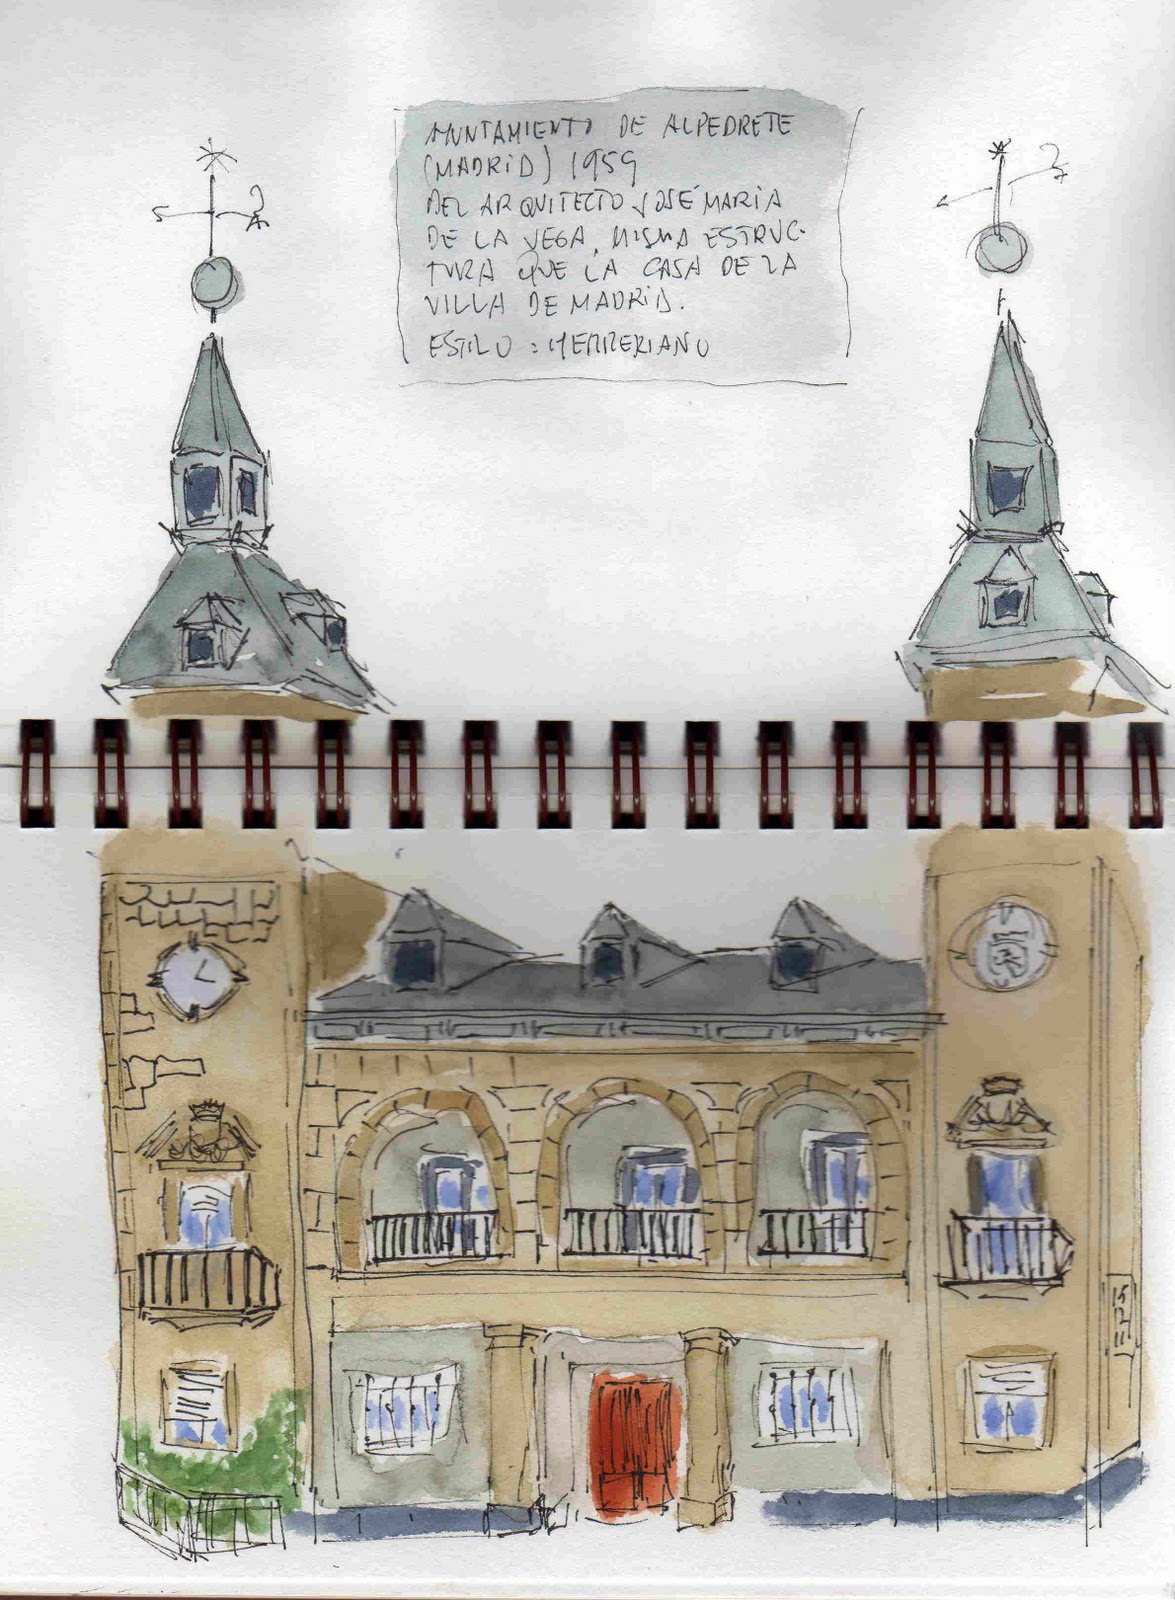 AYUNTAMIENTO DE ALPEDRETE
(MADRID) 1959
DEL ARQUITECTO JOSÉ MARÍA
DE LA VEGA. MISMA ESTRUC-
TURA QUE LA CASA DE LA
VILLA DE MADRID.
ESTILO : HERRERIANO